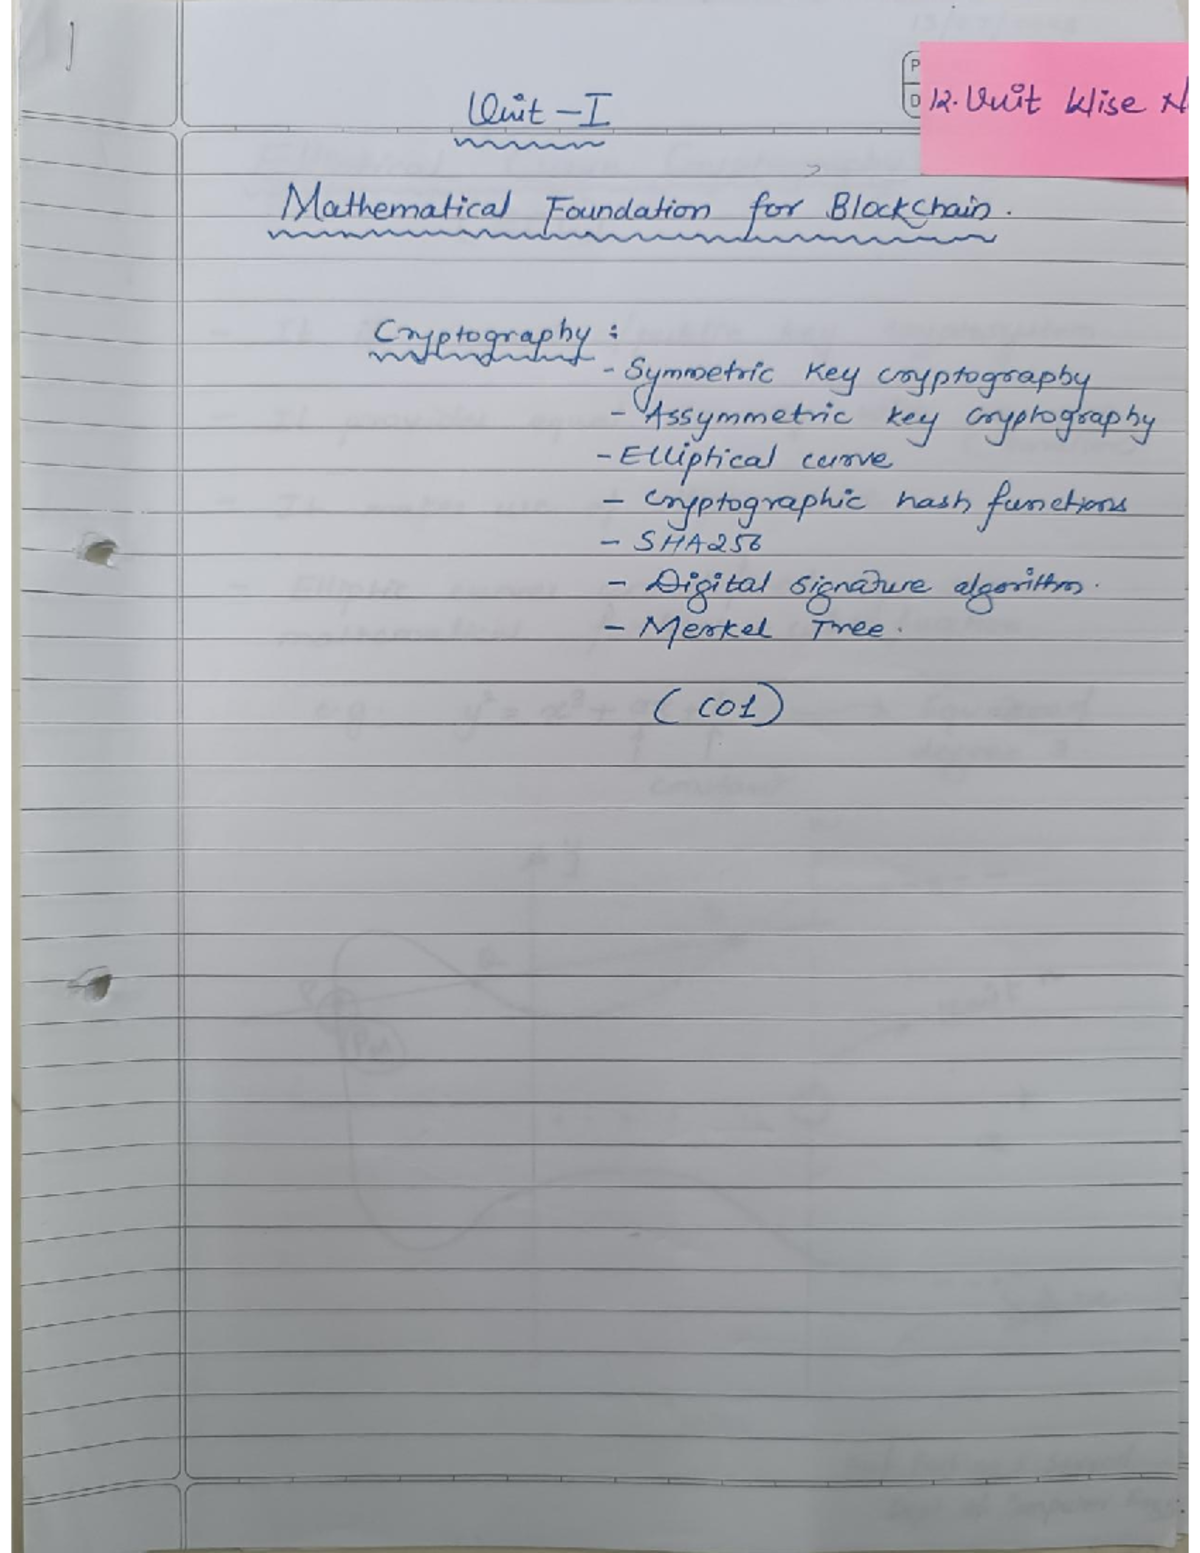 Unit - I
P
D
12. Unit Wise N
Mathematical Foundation for Blockchain.
Cryptography :
- Symmetric Key cryptography
- Assymmetric key cryptography
- Elliptical curve
- Cryptographic hash functions
- SHA256
- Digital signature algorithm.
- Merkel Tree.
(CO1)